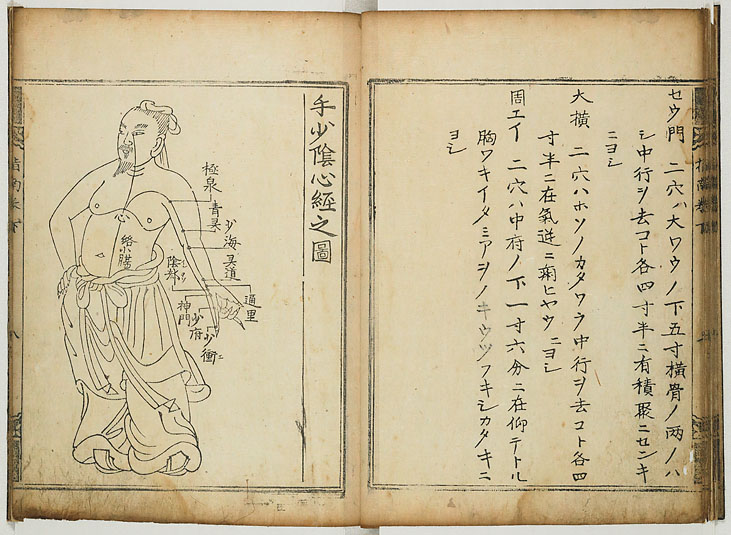 セウ門 二穴ハ大ワウノ下五寸横骨ノ両ノハ
シ中行ヲ去コト各四寸半ニ有積聚ニセンキ
ニヨシ
大横 二穴ハホソノカタワラ中行ヲ去コト各四
寸半ニ在氣逆ニ痢ヒヤウニヨシ
周エイ 二穴ハ中府ノ下一寸六分ニ在仰テトル
胸ワキイタミアヲノキウツフキシカタキニ
ヨシ
手少陰心經之圖
極泉
青灵
少海
灵道
通里
陰郄
神門
少府
少衝
心
絡小腸
指南巻下
八